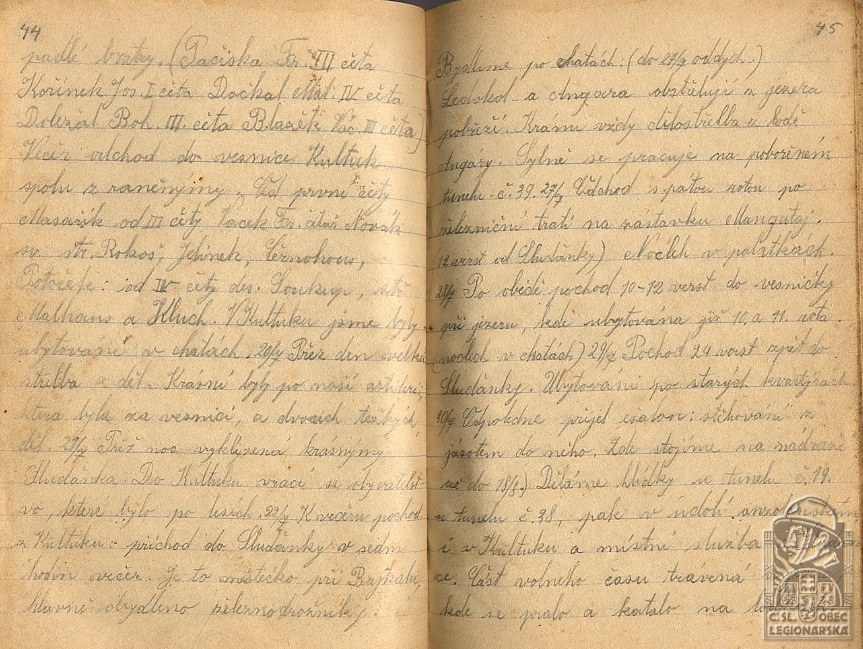 44
padlé bratry. (Paciska Fr. III čéta
Kořínek Jos. I čéta Dockal Mat. IV čéta
Doležal Boh. III. čéta Blazěk Vác. III čéta)
Večer odchod do vesnice Kultuk
spolu z raněnymy. Od první čéty
Masařík od III čéty Vacek Fr. Novák
sv. str. Rokos, Jelínek, Černohous,
od IV čéty des. Soukup, stř.
Malhaus a Kluch. V Kultuku jsme byly
ubytovaní v chatách. 20/7 Přez den velka
střelba z děl. Krásní byly po naší artilerii,
ktera byla za vesnicí, a dvouch težkých
děl. 21/7 Přes noc vyklizená krásnymy
Sludánka. Do Kultuku vrace se obyvatelst-
vo, ktere bylo po lesích. 22/7 K večeru pochod
z Kultuku - příchod do Sludánky v sedm
hodin večer. Je to městečko při Bajkalu,
hlavně obydleno železnodrožníky.
45
Bydlíme po chatách: (do 27/7 oddych.)
Ledokol a Angara obstřelují z jezera
pobřeží. Krásní vždy dělostřelba z lodě
Angáry. Sylně se pracuje na pobořeném
tunelu č. 39. 27/7 Odchod s pátou rotou po
železniční trati na zástavku Mangutaj.
12 verst od Sludánky) Nocleh v palatkách.
28/7 Po obědě pochod 10-12 verst do vesničky
při jezeru, kde ubytována již 10, a 11. rota.
(nocleh v chatách) 29/7 Pochod 24 verst zpět do
Sludánky. Ubytování po starých kvartýrách
30/7 Odpoledne přijel ešalon: stěhování z
jásotem do něho. Zde stojíme na nádraží
až do 18/8.) Děláme hlídky u tunelu č. 19.
u tunelu č. 38, pak v údolí
i v Kultuku a místní služba
ce. Část volného času travená
kde se pralo a katalo na
Č.S. OBEC
LEGIONÁŘSKÁ